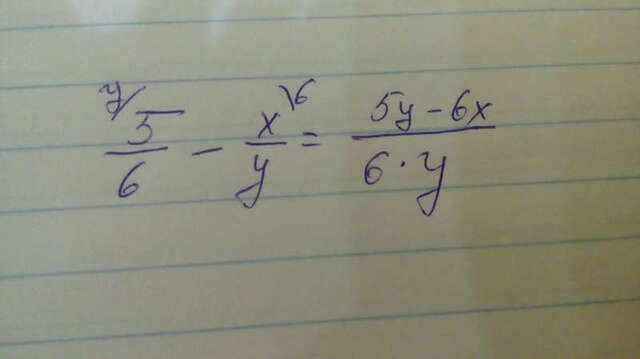 y/ 5/6 - x/y \6 = (5y - 6x)/(6 · y)